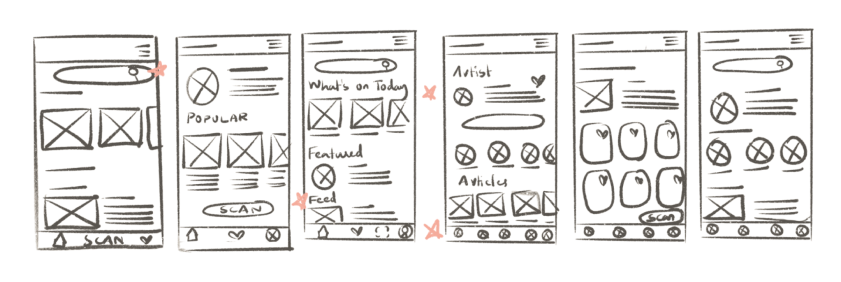 SCAN
POPULAR
SCAN
What's on Today
Featured
Feed
Artist
Articles
Scan